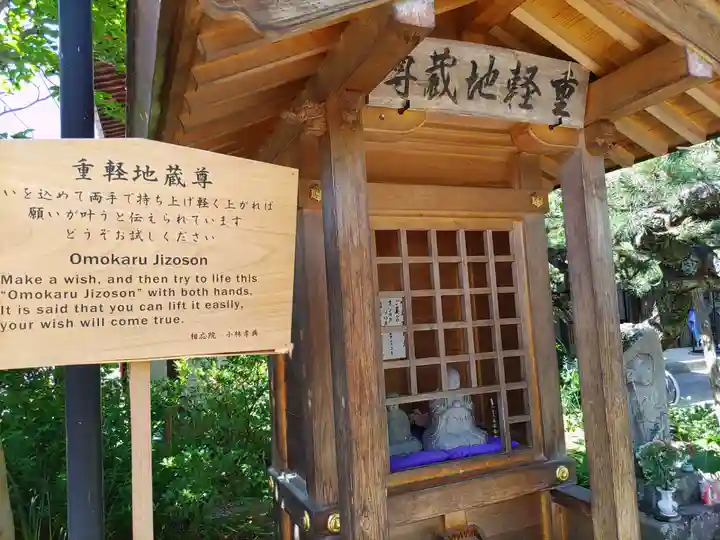 重軽地蔵尊
い を込めて両手で持ち上げ軽く上がれば
願いが叶うと伝えられています
どうぞお試しください
Omokaru Jizoson
Make a wish, and then try to life this
"Omokaru Jizoson" with both hands.
It is said that you can lift it easily,
your wish will come true.
相応院 小林孝典
重軽地蔵尊